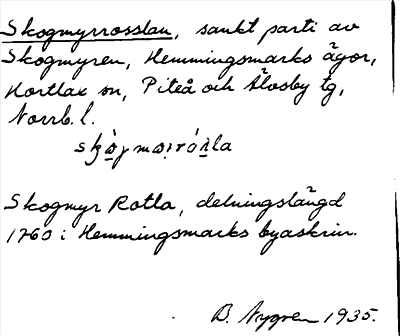 Skogmyrrosslan, sankt parti av
Skogmyren, Hemmingsmarks ägor,
Hortlax sn, Piteå och Älvsby tg,
Norrb. l.
Skogmyr Rotla, delningslängd
1760 i Hemmingsmarks byaskrin.
B. Nygren 1935.